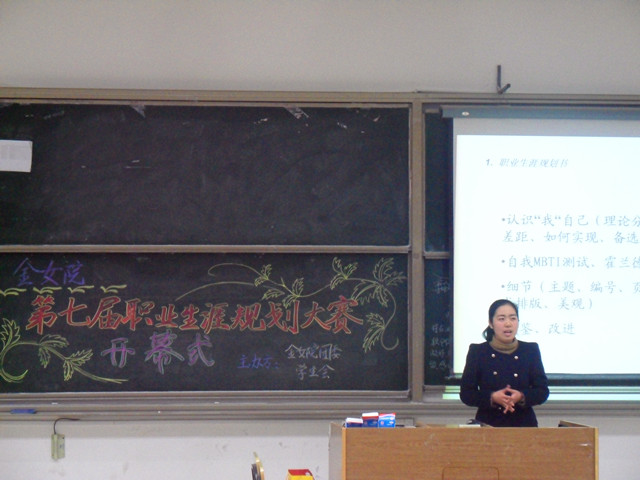 金女院
第七届职业生涯规划大赛
开幕式
主办方：金女院团委
学生会
1、职业生涯规划书
•认识“我”自己（理论分
差距、如何实现、备选
•自我MBTI测试、霍兰德
•细节（主题、编号、页
排版、美观）
、改进